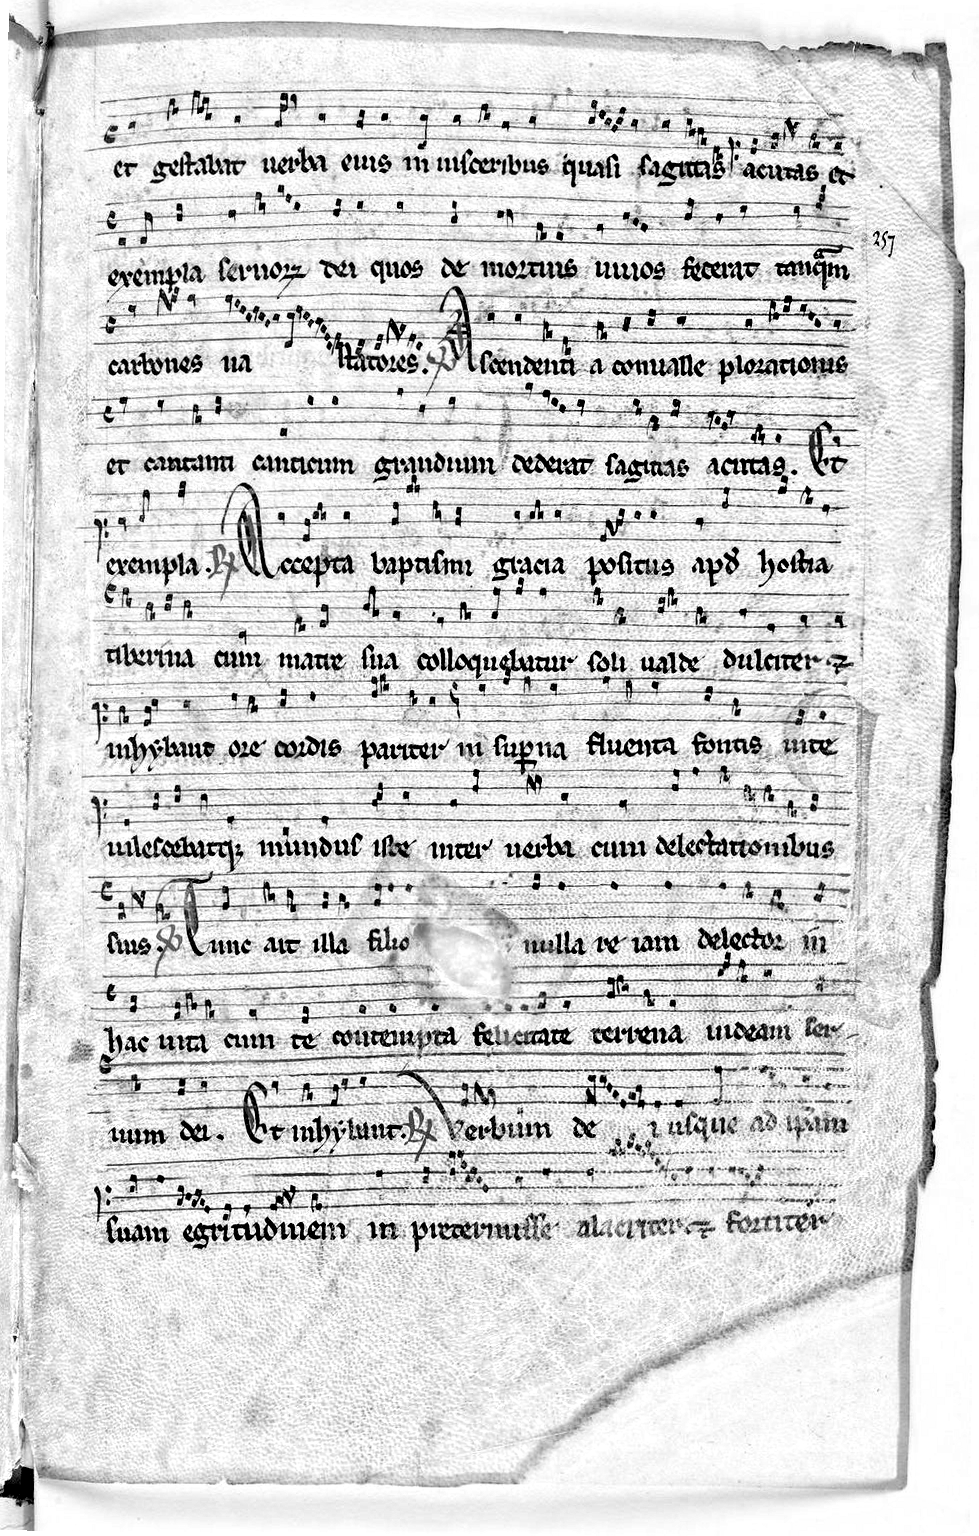 et gestabat uerba eius in uisceribus quasi sagittas acutas et
257
exempla seruoꝝ dei quos de mortuis uiuos fecerat tanq̃m
carbones ua statores. ℣ Ascendenti a conualle plorationis
et cantanti canticum graduum dederat sagittas acutas. Et
exempla. ℟ Accepta baptismi gracia positus apd̕ hostia
tiberina cum matre sua colloquebatur soli ualde dulciter ⁊
inhybant ore cordis pariter in suꝑna fluenta fontis uite
uilescebatqꝫ mundus iste inter uerba cum delectationibus
suis ℣ Tunc ait illa filio nulla re iam delector in
hac uita cum te contempta felicitate terrena uideam ser
uum dei. Et inhybant. ℟ Verbum de i usque ad ip̃am
suam egritudinem in pretermisse alacriter ⁊ fortiter